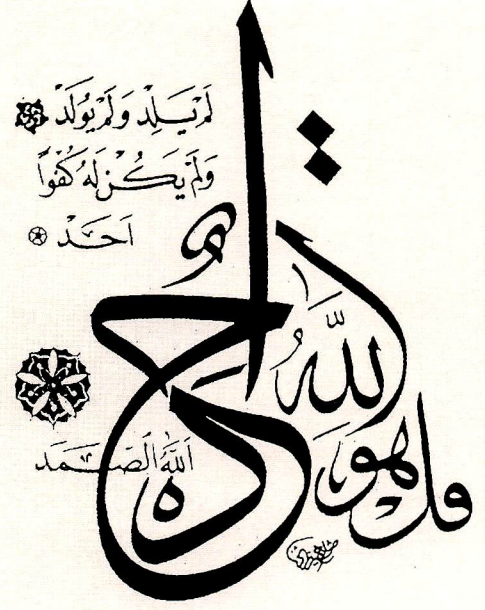 قل هو
الله
احد
الله الصمد
لم يلد ولم يولد
ولم يكن له كفوا
احد